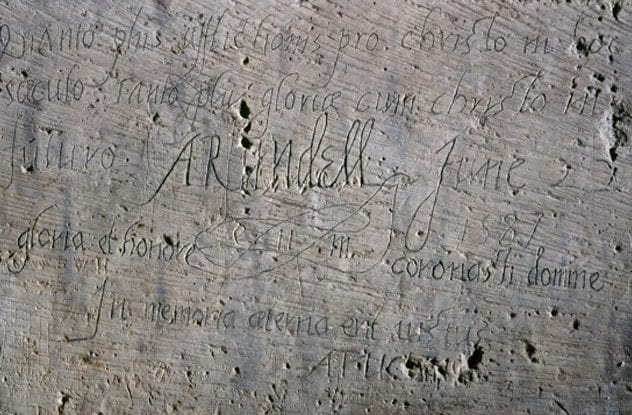 Quanto plus afflictionis pro christo in hoc
saeculo Tanto plus gloriae cum christo in
futuro. ARundell June 22
1587
gloria et honore eum coronasti domine
In memoria aeterna erit iustus